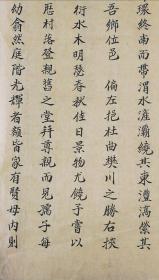 環終南而帶渭水滻灞繞其東澧潏縈其
吾鄉位邑 偏左挹杜曲樊川之勝右
衍水木明瑟春秋佳日景物尤饒予嘗以
歷村落登親舊之堂拜尊親而見孺子每
幼翕然庭階尤輝者類皆家有賢母內則